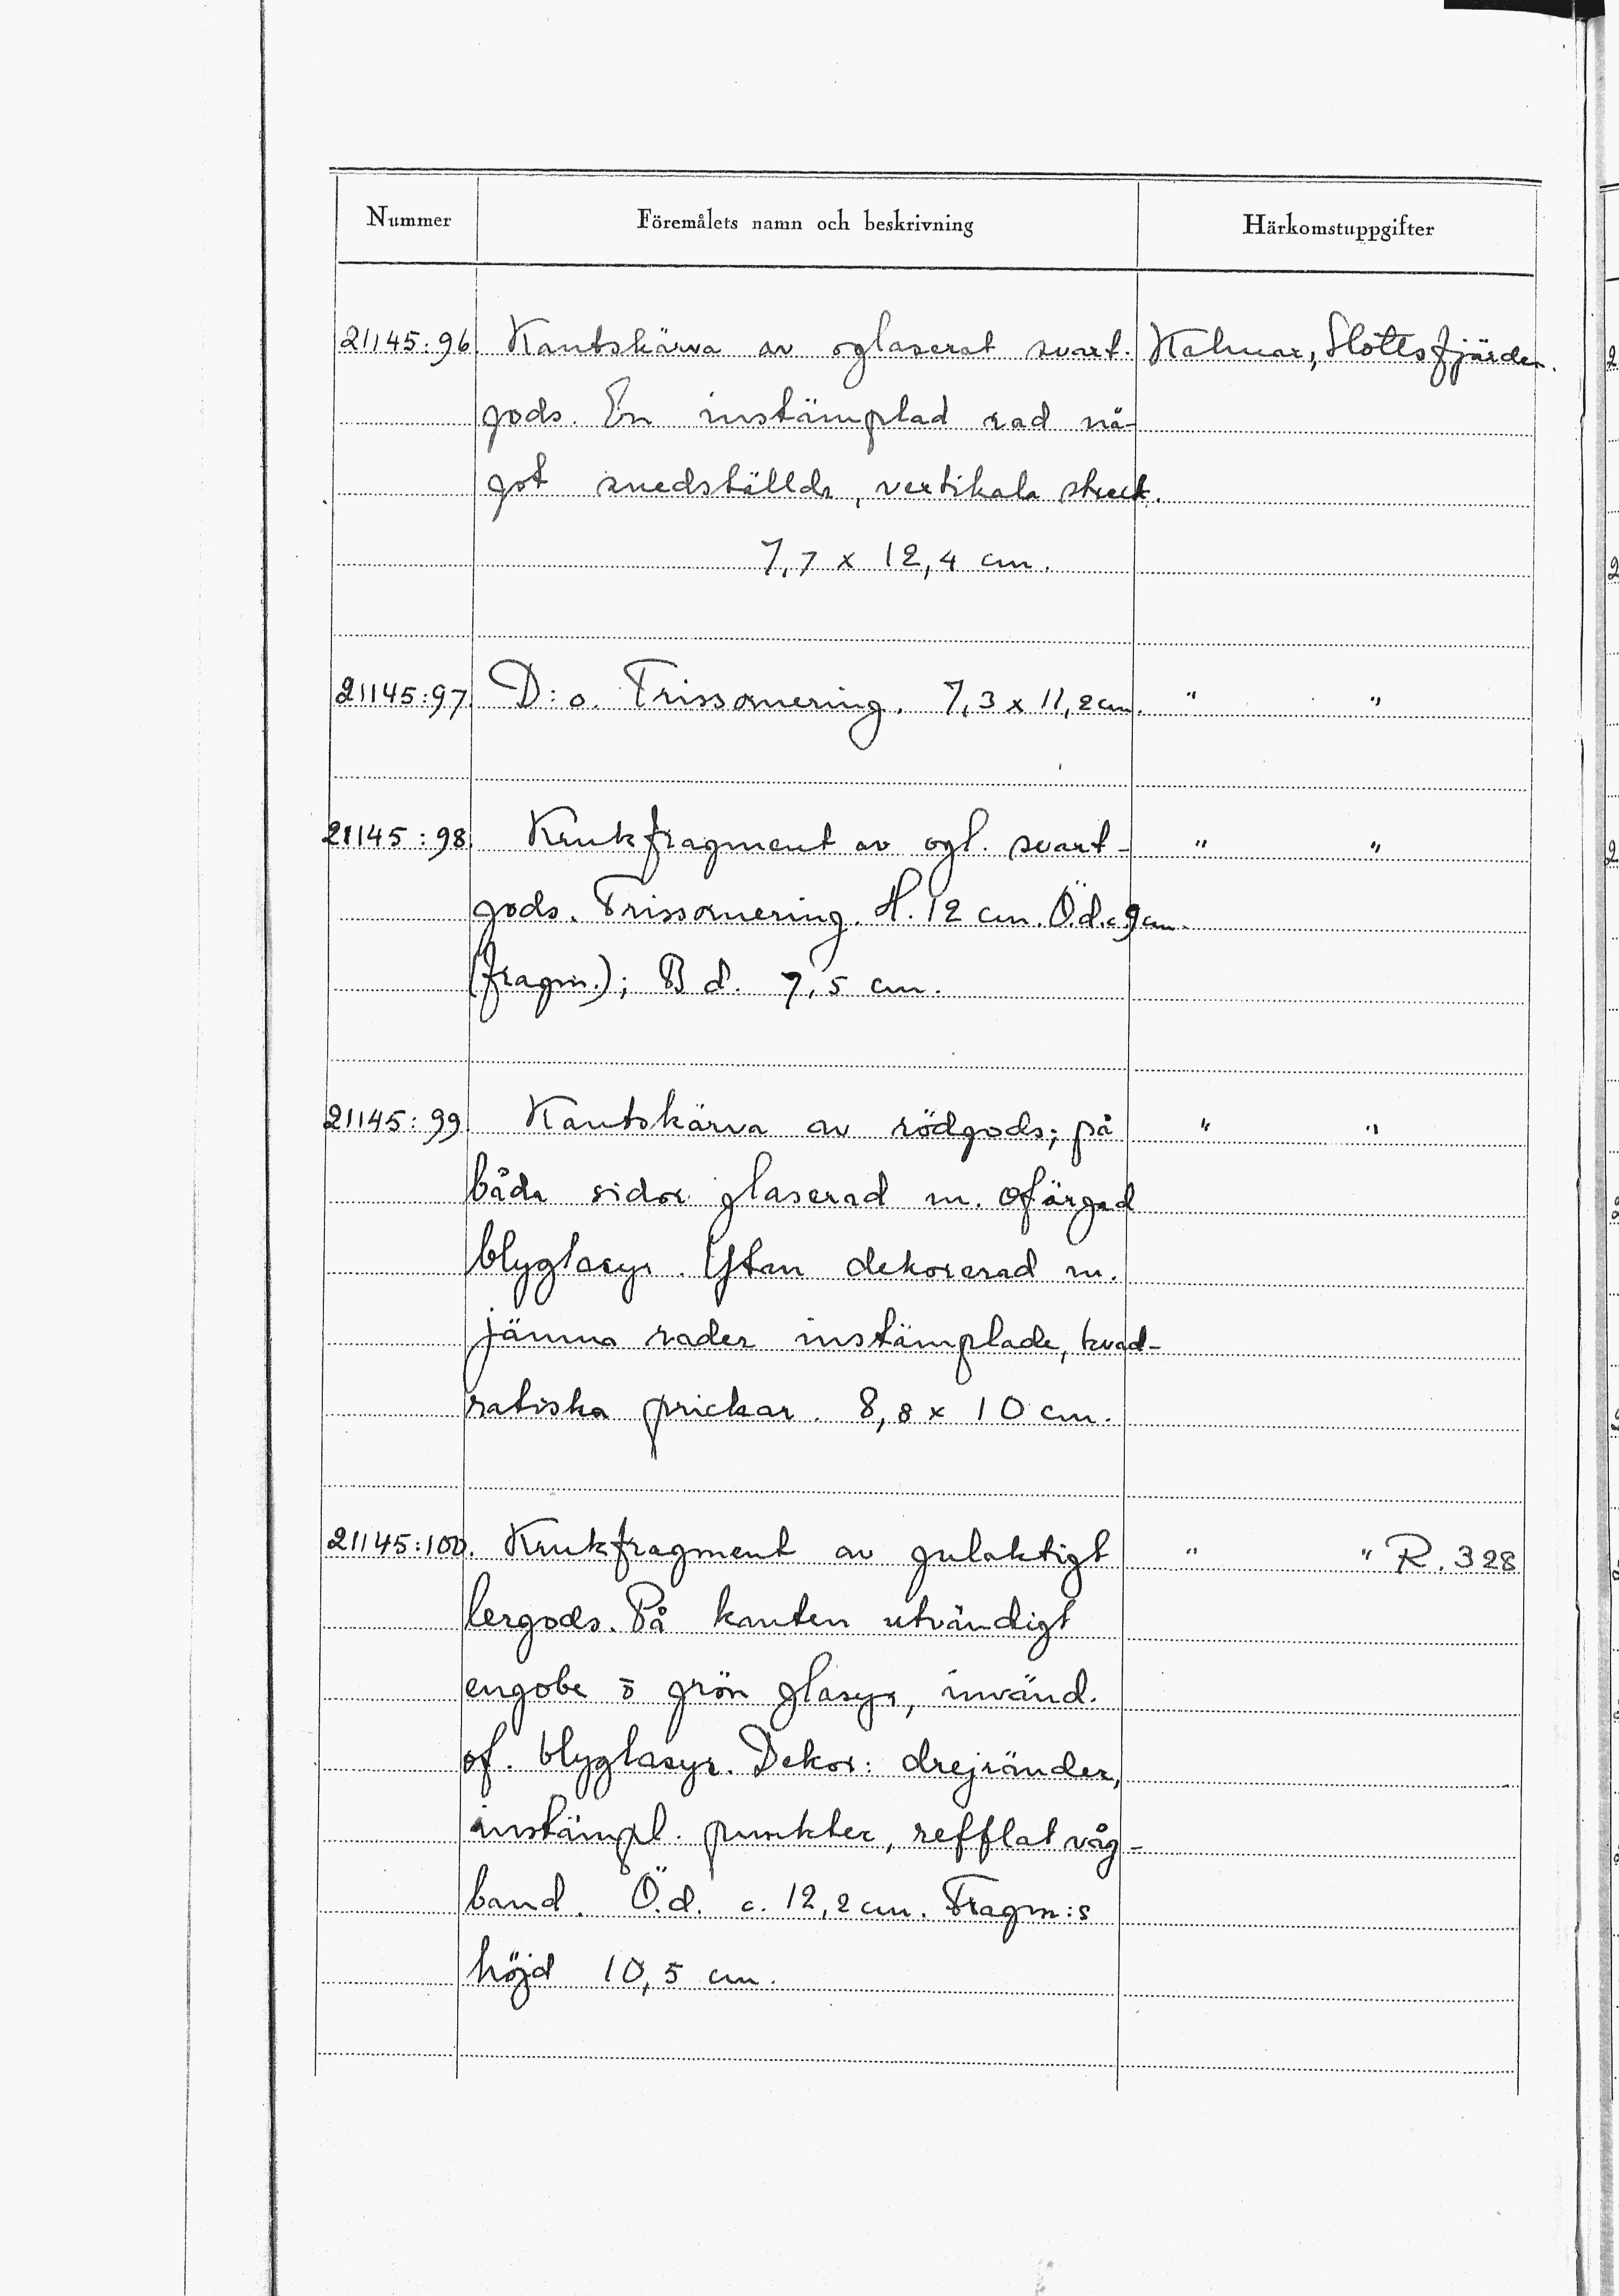 Nummer Föremålets namn och beskrivning Härkomstuppgifter
21145:96. Kantskärva av oglaserat svart- Kalmar, Slottsfjärden.
gods. En instämplad rad nå-
got snedställda, vertikala streck.
7,7 x 12,4 cm.
21145:97. D:o. Trissornering. 7,3 x 11,2 cm. " "
21145:98. Krukfragment av ogl. svart- " "
gods. Trissornering. H. 12 cm. Ö.d. c. 9 cm.
(fragm.); B d. 7,5 cm.
21145:99. Kantskärva av rödgods; på " "
båda sidor glaserad m. ofärgad
blyglasyr. Ytan dekorerad m.
jämna rader instämplade, kvad-
ratiska prickar. 8,8 x 10 cm.
21145:100. Krukfragment av gulaktigt " " R. 328
lergods. På kanten utvändigt
engobe o grön glasyr, invänd.
of. blyglasyr. Dekor: drejränder,
instämpl. punkter, refflat våg-
band. Ö.d. c. 12,2 cm. Fragm:s
höjd 10,5 cm.